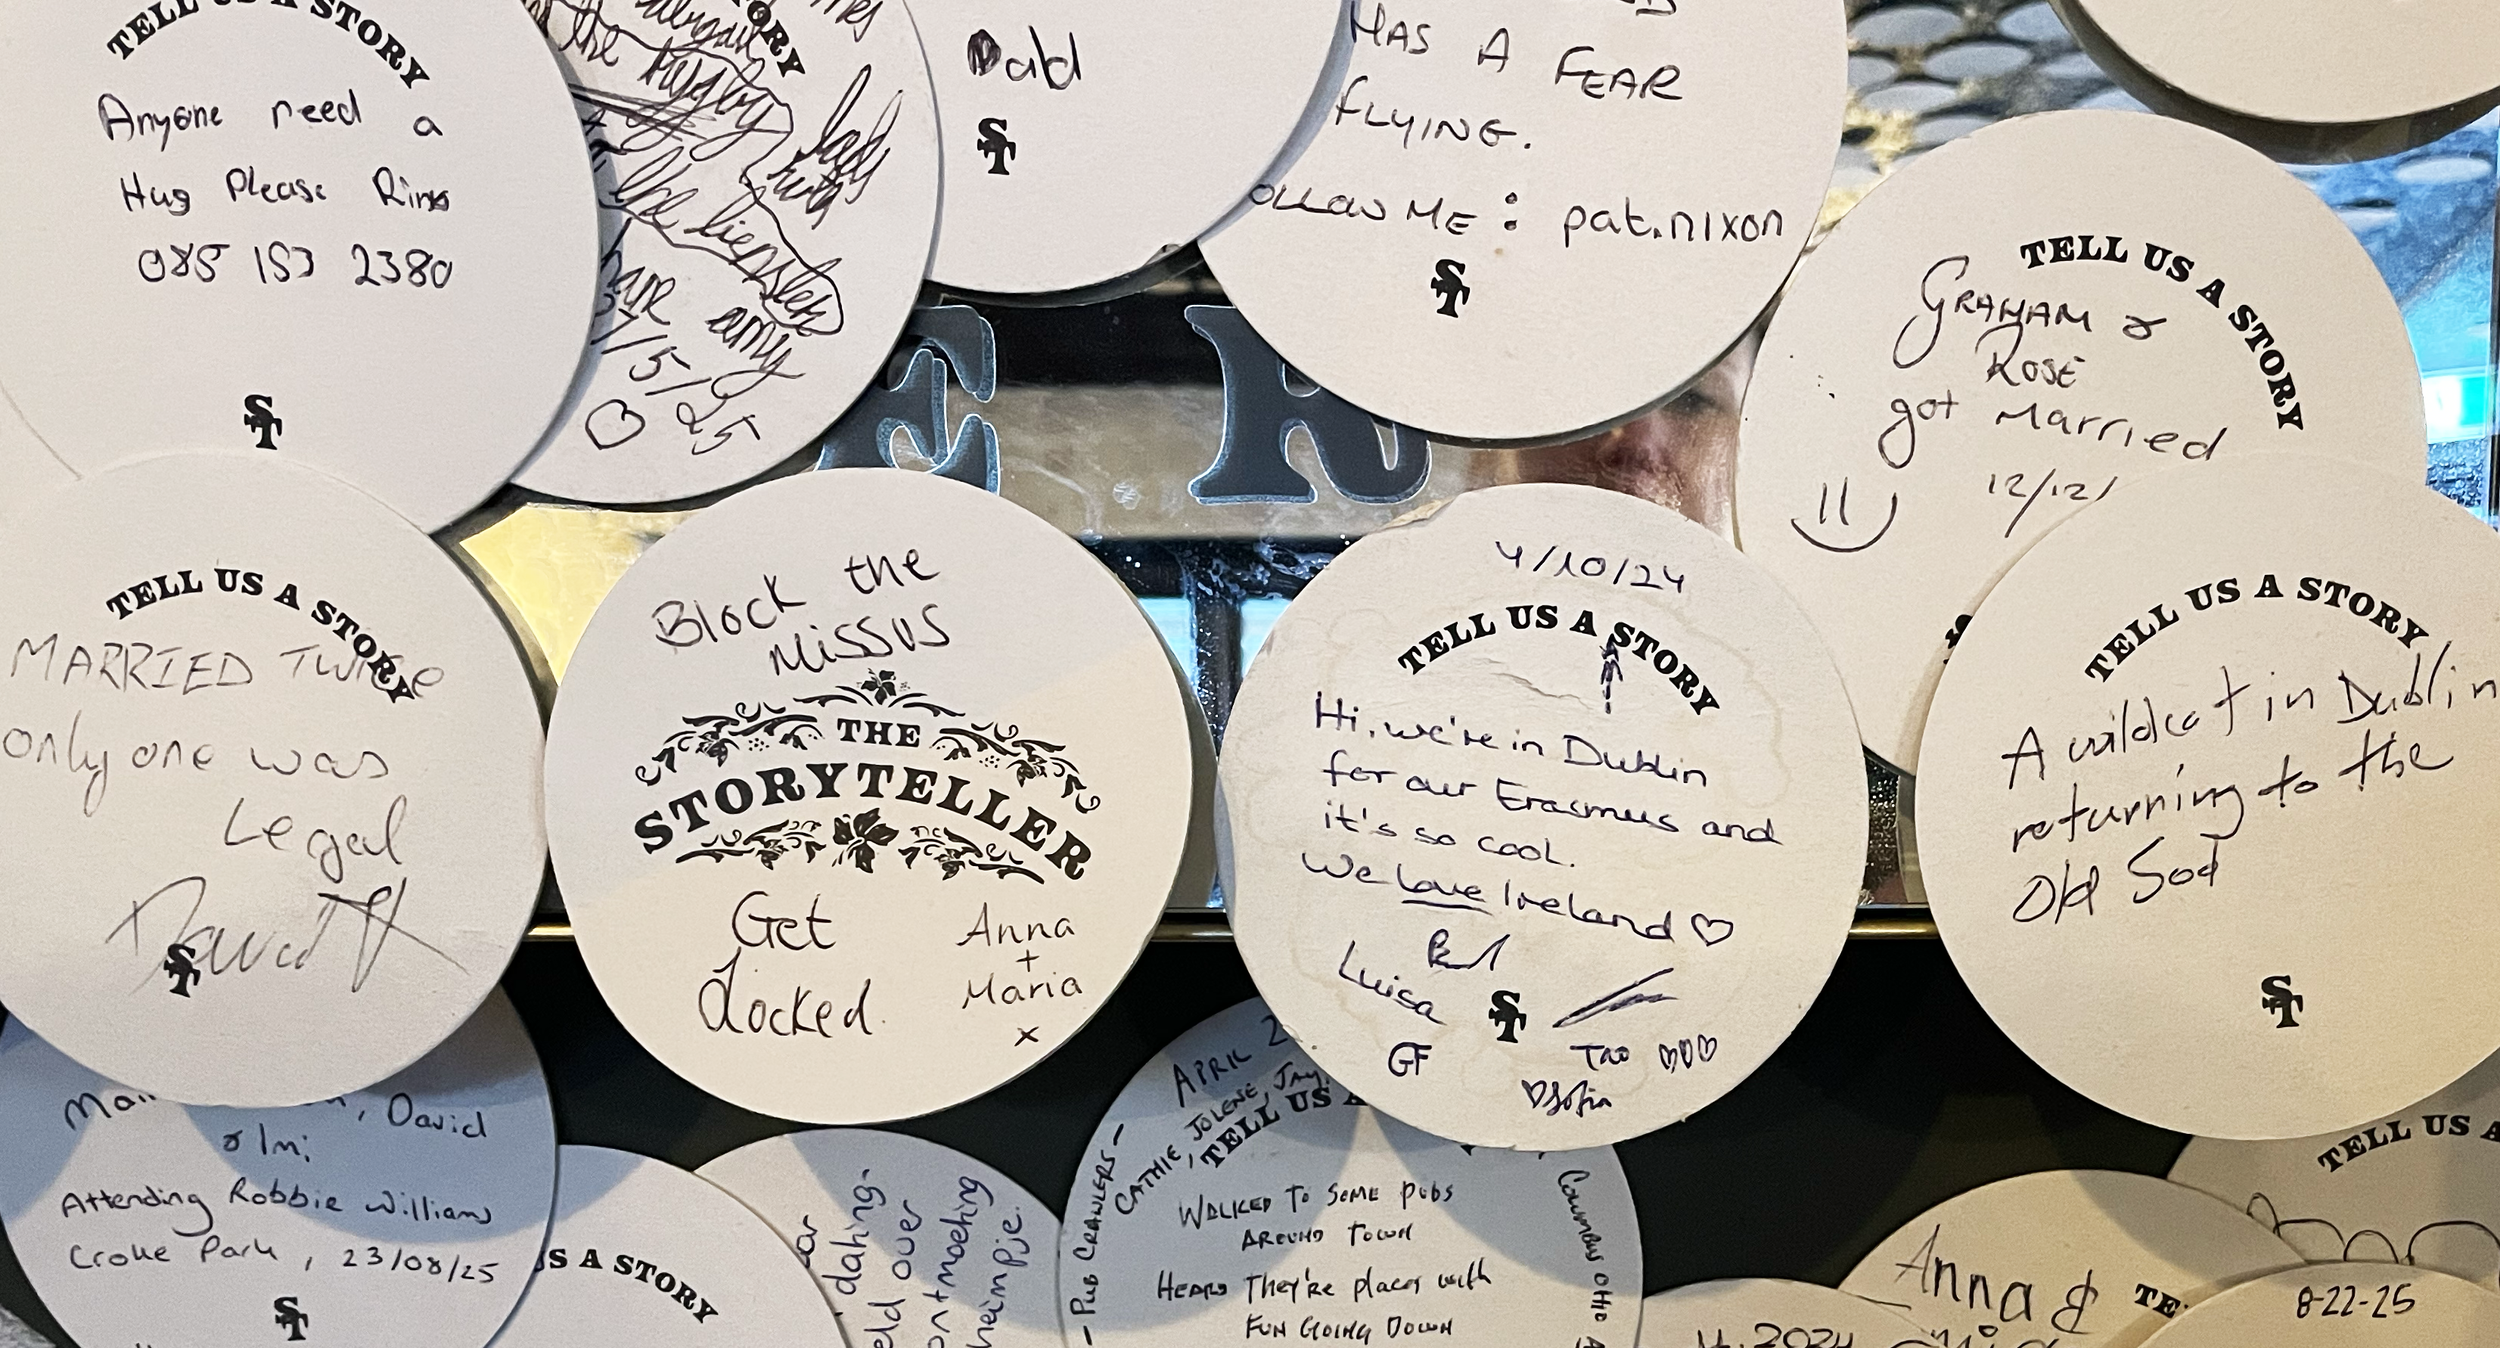 TELL US A STORY
Anyone need a
Hug Please Ring
085 153 2380
ST
STORY
the rugby
lads
the lienster
any
/5/25
ald
ST
HAS A FEAR
FLYING.
OLLOW ME: pat.nixon
ST
E R
TELL US A STORY
GRAHAM &
ROSE
got Married
12/12/
TELL US A STORY
MARRIED Twice
only one was
Legal
David
ST
Block the
Missus
THE
STORYTELLER
Get
Locked.
Anna
+
Maria
x
4/10/24
TELL US A STORY
Hi, we're in Dublin
for our Erasmus and
it's so cool.
We love Ireland ♡
Luisa
GF
ST
Tao ♡♡♡
♡Sofia
TELL US A STORY
A wildcat in Dublin
returning to the
Old Sod
ST
, David
& Imi
Attending Robbie Williams
Croke Park, 23/08/25
ST
US A STORY
eld over
APRIL 2
CATHIE, JOLENE, JAY
TELL US A
- PUB CRAWLERS -
WALKED TO SOME PUBS
AROUND TOWN
HEARD They're places with
FUN GOING DOWN
Columbus OHIO
TELL US A
Anna &
TE
2024
8-22-25